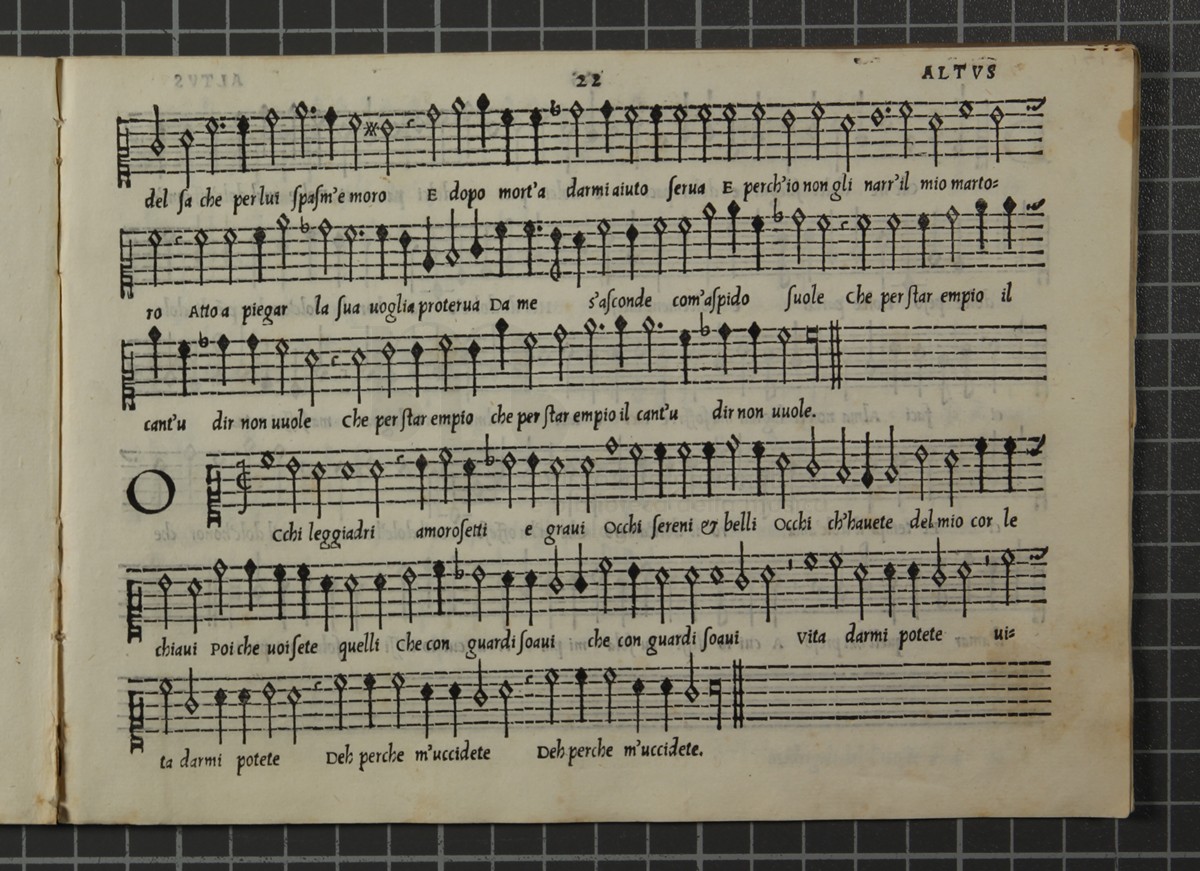 22
ALTVS
del sa che per lui spasm'e moro E dopo mort'a darmi aiuto serua E perch'io non gli narr'il mio marto=
ro Atto a piegar la sua uoglia proterua Da me s'asconde com'aspido suole Che per star empio il
cant'u dir non uuole Che per star empio che per star empio il cant'u dir non uuole.
O
Cchi leggiadri amorosetti e graui Occhi sereni & belli Occhi ch'hauete del mio cor le
chiaui Poi che uoi sete quelli Che con guardi soaui che con guardi soaui Vita darmi potete ui=
ta darmi potete Deh perche m'uccidete Deh perche m'uccidete.